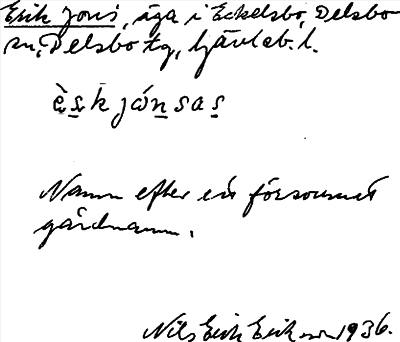 Erik Jons, äga i Eckelsbo, Delsbo
sn, Delsbo tg, Gävleb. l.
è̱s̱k jónsas̱
Namn efter ett försvunnet
gårdnamn.
Nils Erik Eriksson 1936.